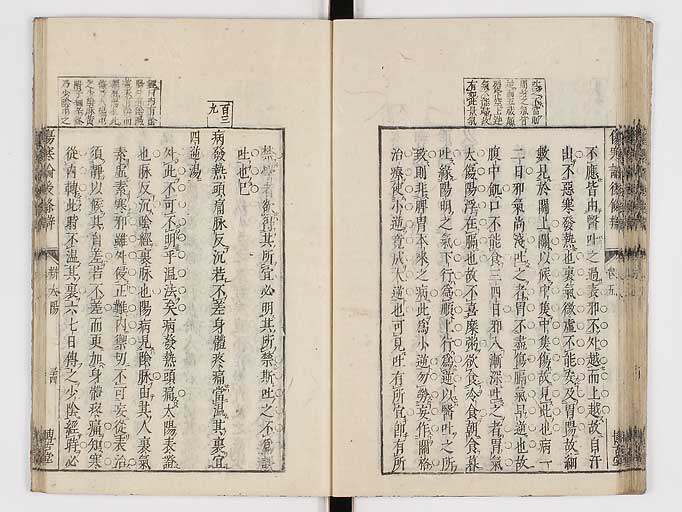 傷寒論後條辨
卷五
博古堂
不應皆由醫吐之過表邪不外越而上越故自汗
出不惡寒發熱也裏氣微虛不能安及胃陽故細
數見於關上關以候中集中集傷故見此也病一
二日邪氣尚淺吐之者胃不盡傷膈氣早逆也故
腹中飢口不能食三四日邪入漸深吐之者胃氣
大傷陽浮在膈也故不喜糜粥欲食冷食朝食暮
吐緣陽明之氣下行為順上行為逆以醫吐之所
致則非脾胃本來之病此為小逆勿勞妄作關格
治療使小逆竟成大逆也可見吐有所宜卽有所
禁學者欲得其所宜必明其所禁斯吐之不為誤
吐也已
百三
九
病發熱頭痛脉反沉若不差身體疼痛當溫其裏宜
四逆湯
外此不可不明乎溫法矣病發熱頭痛太陽表證
也脉反沉陰經裏脉也陽病見陰脉由其人裏氣
素虛素寒邪雖外侵正難內禦切不可妄從表治
須靜以候其自差若不差而更加身體疼痛知寒
從內轉此時不溫其裏六七日傳之少陰經時必
傷寒論後條辨
辨太陽
博古堂